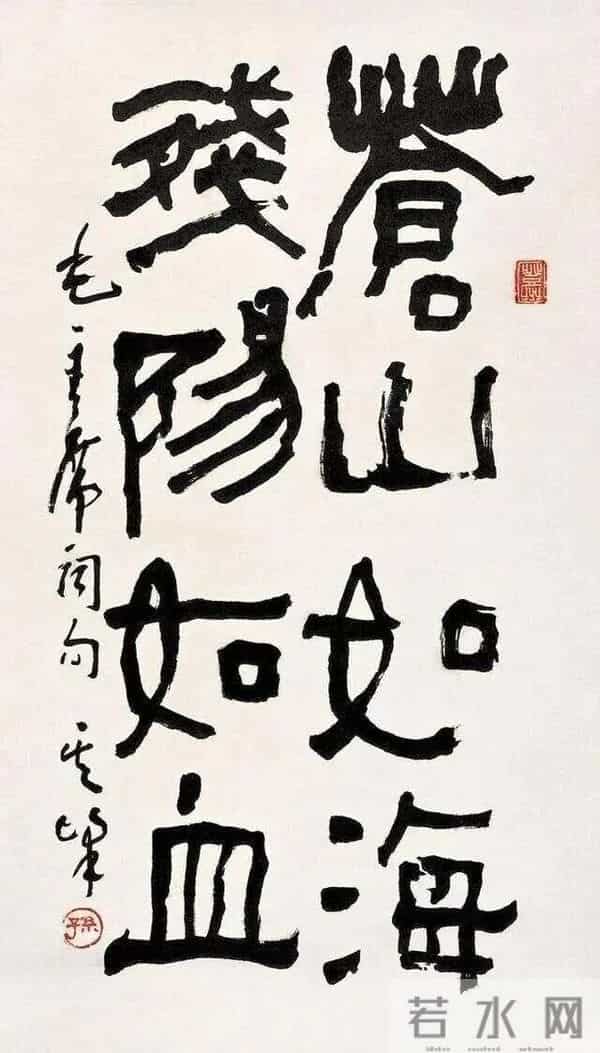 蒼山如海
殘陽如血
毛主席詞句 其峰
孫
若水网